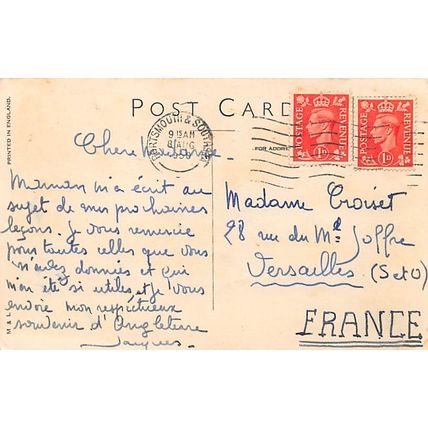 POST CARD
PRINTED IN ENGLAND.
FOR ADDRE
M & L
PORTSMOUTH & SOUTHSEA
9 15 AM
8 AUG
POSTAGE REVENUE
1D
POSTAGE REVENUE
1D
Chère Madame.
Maman m'a écrit au
sujet de mes prochaines
leçons. Je vous remercie
pour toutes celles que vous
m'avez données et qui
m'ont été si utiles et je vous
envoie mon respectueux
souvenir d'Angleterre
Jacques.
Madame Croiset
28 rue du Mal Joffre
Versailles. (S et O)
FRANCE